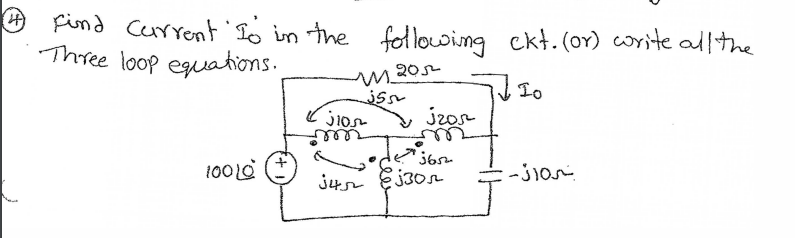 ④ Find Current 'Io' in the following ckt. (or) write all the
Three loop equations.
20Ω
j5Ω
Io
j10Ω
j20Ω
j6Ω
100∠0°
+
-
j4Ω
j30Ω
-j10Ω